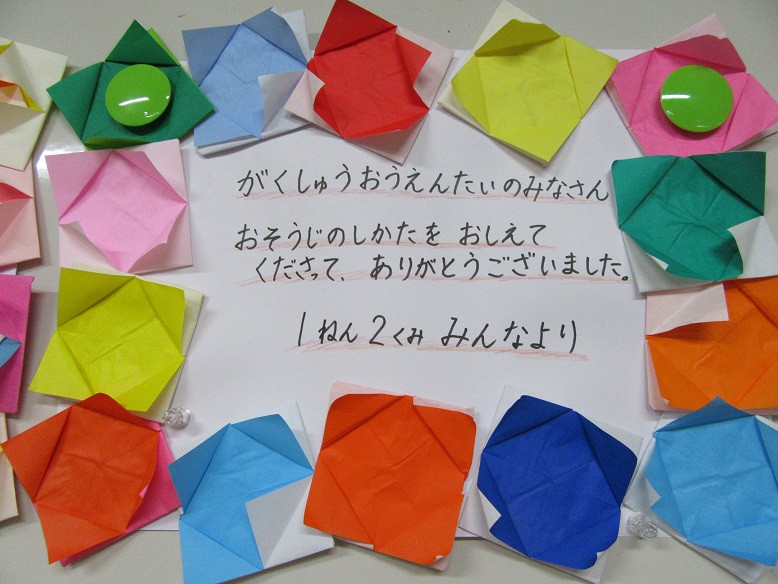 がくしゅうおうえんたいのみなさん
おそうじのしかたを おしえて
くださって、ありがとうございました。
1ねん2くみ みんなより